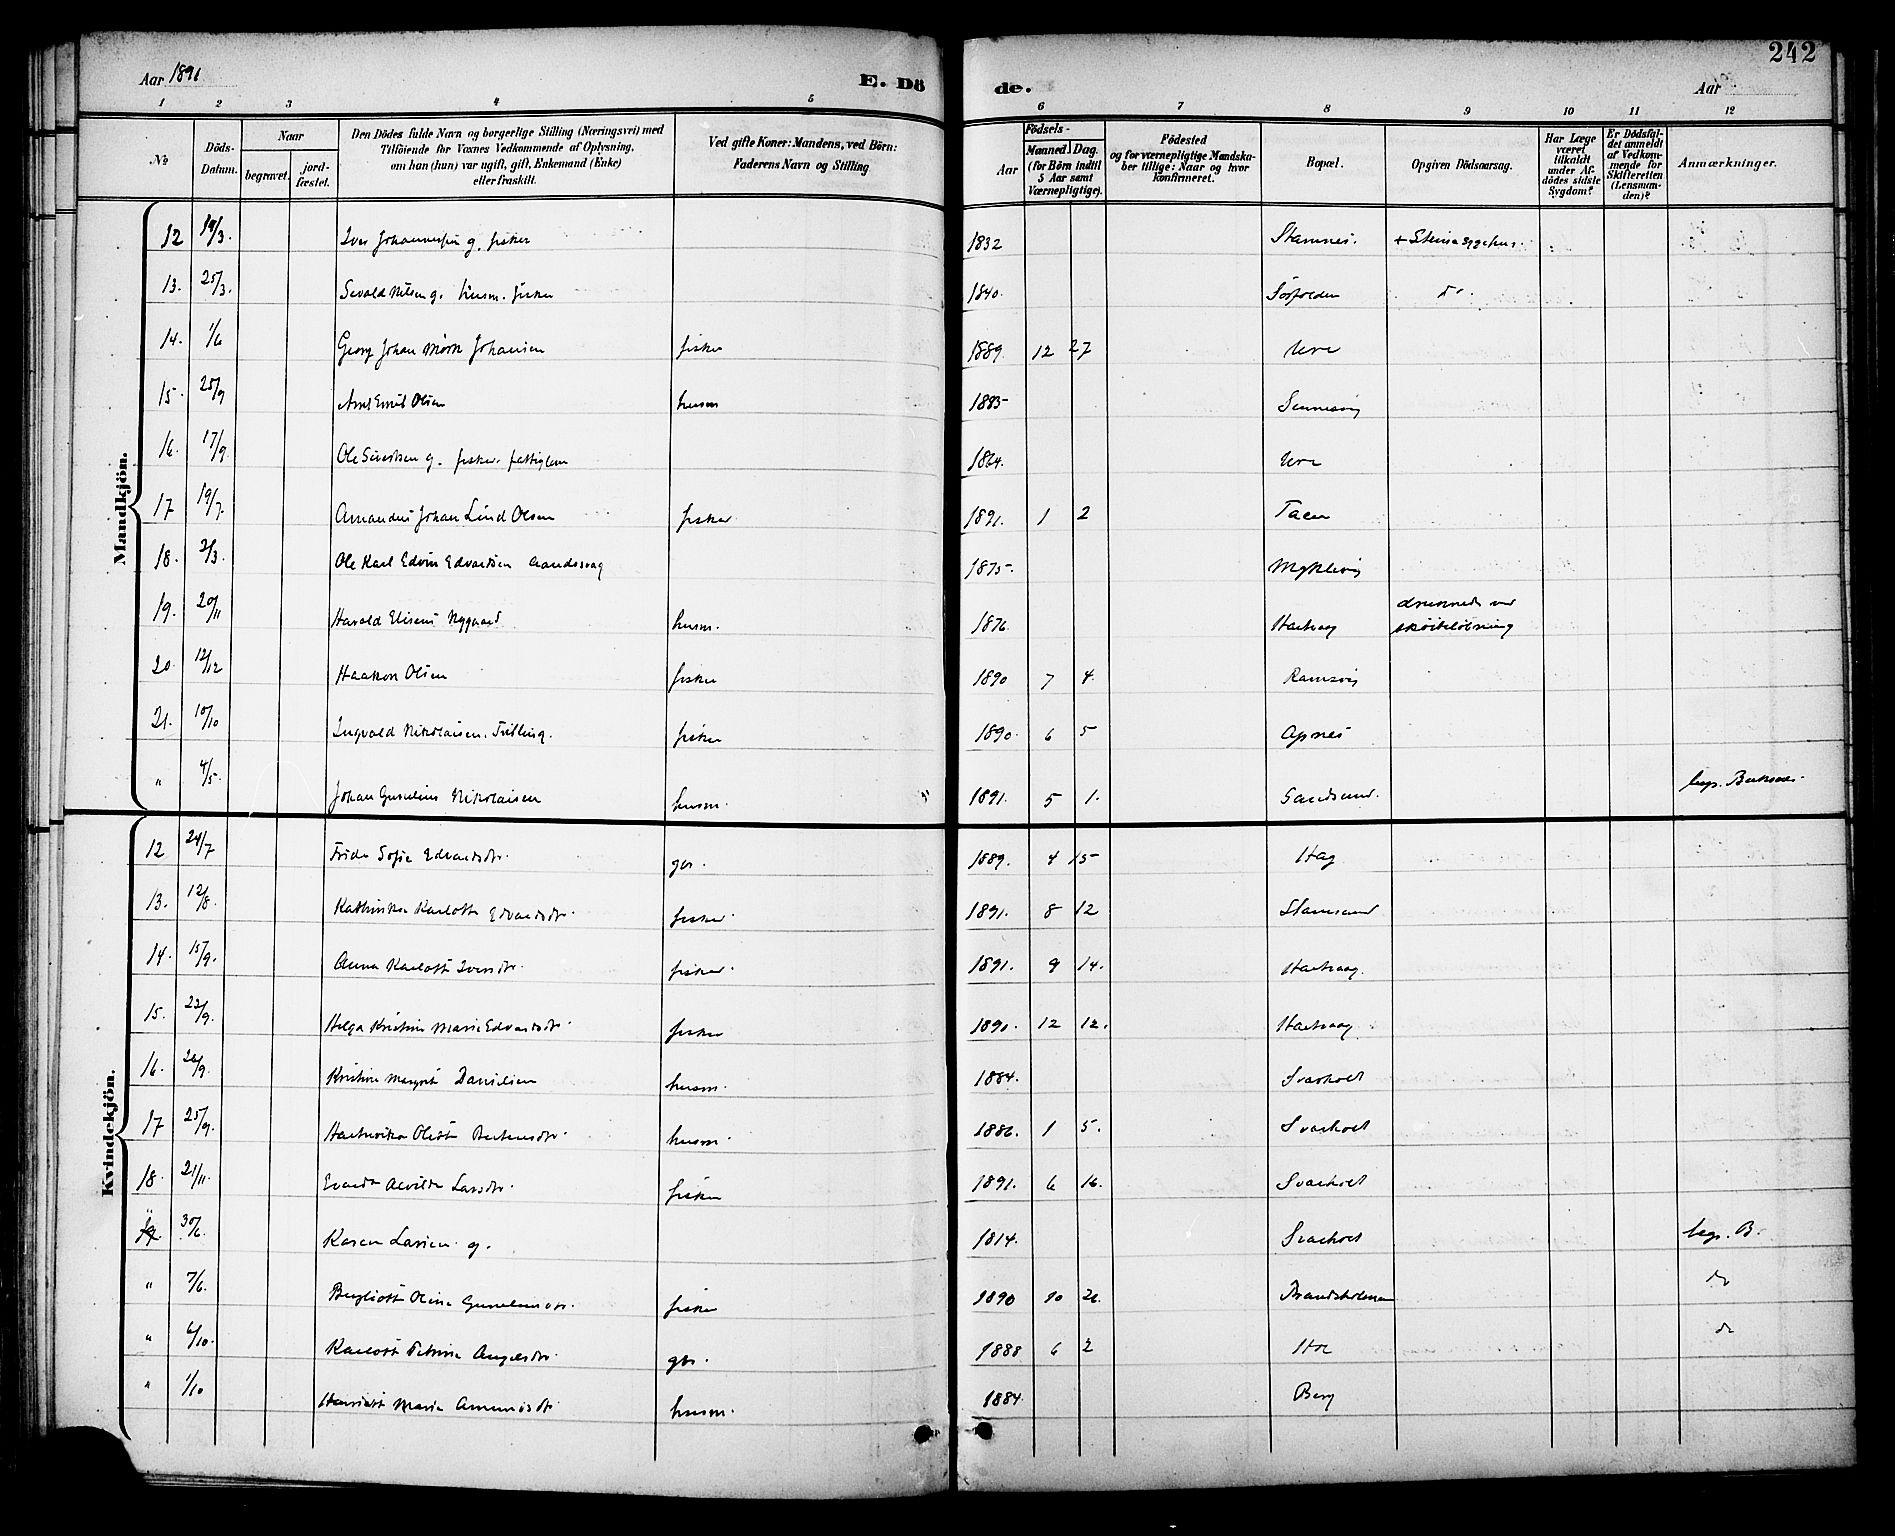 242
Aar 1891
E. Dö
de.
Aar
1 2 3 4 5 6 7 8 9 10 11 12
No
Döds-Datum.
Naar
begravet.
jord-fæstet.
Den Dödes fulde Navn og borgerlige Stilling (Næringsvei) med
Tilföiende for Voxnes Vedkommende af Oplysning,
om han (hun) var ugift, gift, Enkemand (Enke)
eller fraskilt.
Ved gifte Koner: Mandens, ved Börn:
Faderens Navn og Stilling
Födsels-
Aar
Maaned
Dag.
(for Börn indtil
5 Aar samt
Værnepligtige).
Födested
og for værnepligtige Mandska-
ber tillige: Naar og hvor
konfirmeret.
Bopæl.
Opgiven Dödsaarsag.
Har Læge
været
tilkaldt
under Af-
dödes sidste
Sygdom?
Er Dödsfal-
det anmeldt
af Vedkom-
mende for
Skifteretten
(Lensman-
den)?
Anmærkninger.
Mandkjön.
12 19/3. Iver Johannessen g. fisker 1832 Stamnes. + Steine sygehus.
13. 25/3. Sevald Nilsen g. husm. fisker 1840. Sörfolden do.
14. 1/6 Georg Johan Mörk Johansen fisker 1889. 12 27 Ure
15. 25/9 Axel Emil Olsen husm 1885 Sennesvig
16. 17/9. Ole Sivertsen g. fisker. fattiglem 1864. Ure
17 19/7. Amandus Johan Lind Olsen fisker. 1891. 1 2 Taen
18. 2/3. Ole Karl Edvin Edvardsen aandssvag 1875. Myklevig
19. 20/11 Harald Eliseus Nygaard husm. 1876 Hartvaag druknede ved
sköiteløbning
20. 12/12 Haakon Olsen fisker 1890 7 4. Ramsvig
21. 10/10 Ingvald Nikolaisen. Trilling. fisker 1890. 6 5 Apnes
" 4/5. Johan Gunelius Nikolaisen husm. 1891. 5 1. Sandsund. begr. Buksnes.
Kvindekjön.
12 24/7 Frida Sofie Edvardsdtr. gbr. 1889. 4 15 Hag
13. 12/8. Kathinka Karlotte Edvardsdtr. fisker. 1891. 8 12 Stamsund
14. 15/9. Anna Karlotte Iversdtr. fisker. 1891. 9 14. Hartvaag.
15. 22/9. Helga Kristine Marie Edvardsdtr. fisker 1890. 12 12. Hartvaag.
16. 26/9. Kristine Margrete Danielsen husm. 1884. Svarholt
17 25/9. Hartvikka Olette Bertensdtr. husm. 1886. 1 5. Svarholt
18. 21/11. Evarda Alvilde Larsdtr. fisker 1891. 6 16. Svarholt
" 30/6. Karen Larsen g. 1814. Svarholt begr. B.
" 7/6. Bergliotte Oline fisker 1890 10 26. Brandsholmen do
" 6/10. Karlotte Petrine Angelsdtr. gbr. 1888 6 2 Hol do
" 1/10 Henriette Marie Amundsdtr. husm. 1884. Berg